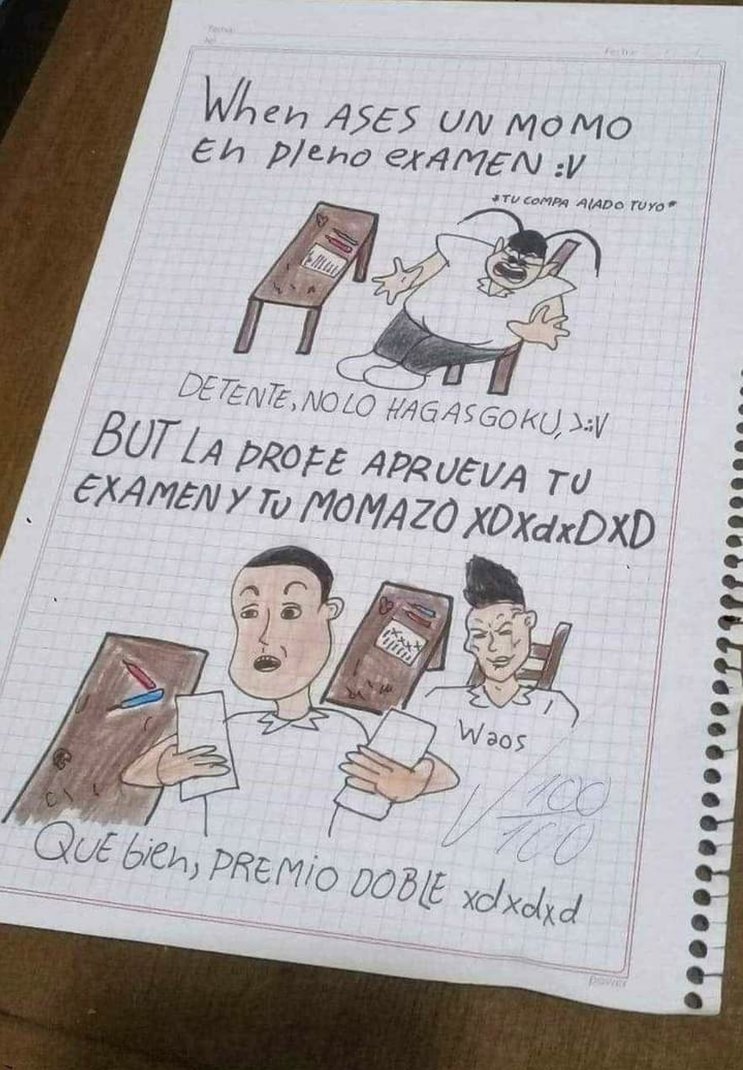 Fecha:
No.
Fecha:
When ASES UN MOMO
En pleno eXAMEN :V
*TU COMPA ALADO TUYO*
DETENTE, NO LO HAGAS GOKU, >:V
BUT LA PROFE APRUEVA TU
EXAMEN Y TU MOMAZO XDXdxDXD
Waos
100
100
QUE bien, PREMIO DOBLE xdxdxd